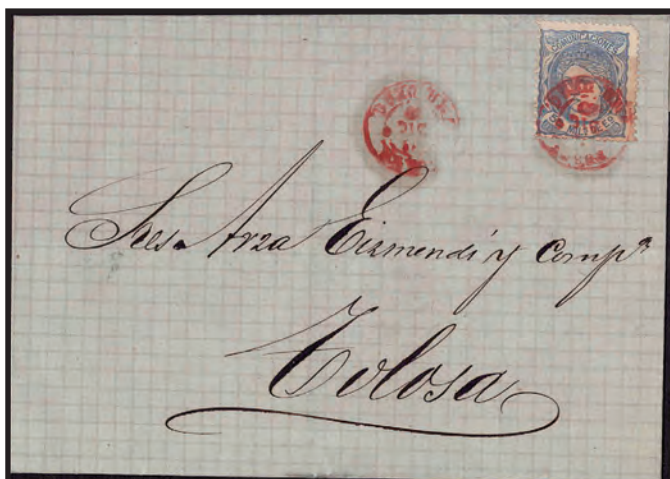 COMUNICACIONES
50 MILS DE E
DIC
Sres. Arza Eizmendi y Compª
Tolosa